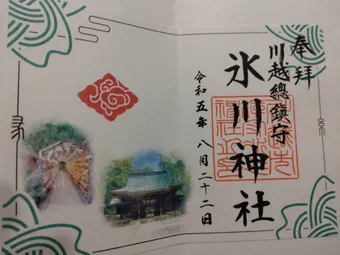 奉拝
川越總鎮守
氷川神社
令和五年 八月二十二日